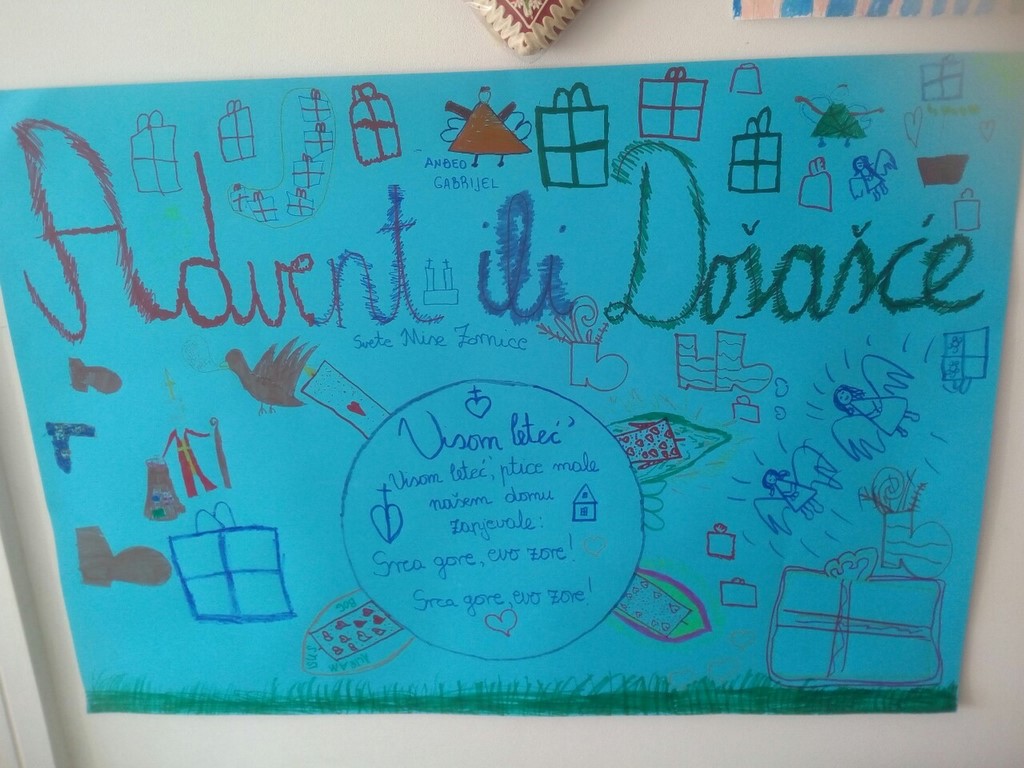 Advent ili Došašće
ANĐEO
GABRIJEL
Svete Mise Zornice
Visom leteć'
Visom leteć, ptice male
našem domu
zapjevale:
Srca gore, evo zore!
Srca gore, evo zore!
BOG